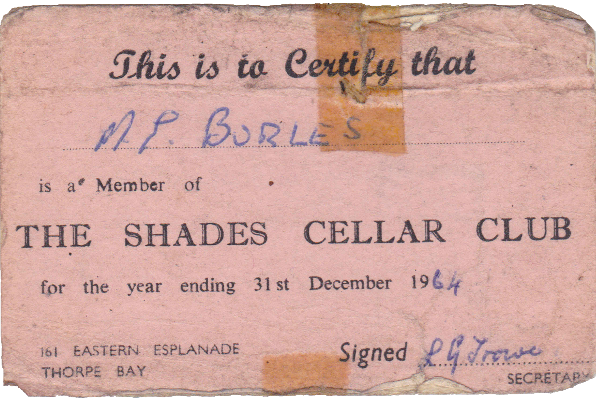 This is to Certify that
M P. BURLES
is a Member of
THE SHADES CELLAR CLUB
for the year ending 31st December 1964
161 EASTERN ESPLANADE
THORPE BAY
Signed L G Trowe
SECRETARY